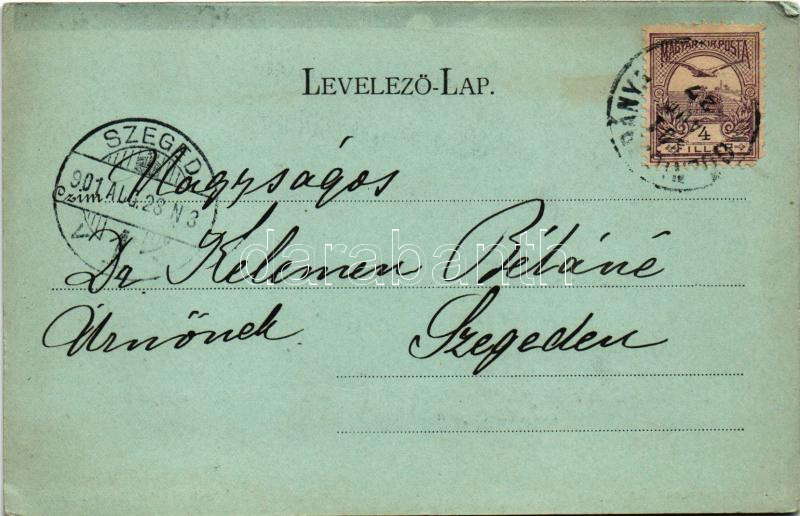 MAGYAR KIR. POSTA
4
FILLÉR
LEVELEZŐ-LAP.
SZEGED
901 AUG. 28 N 3
Czim Nagyságos
Dr Kelemen Béláné
Úrnőnek Szegeden
darabanth